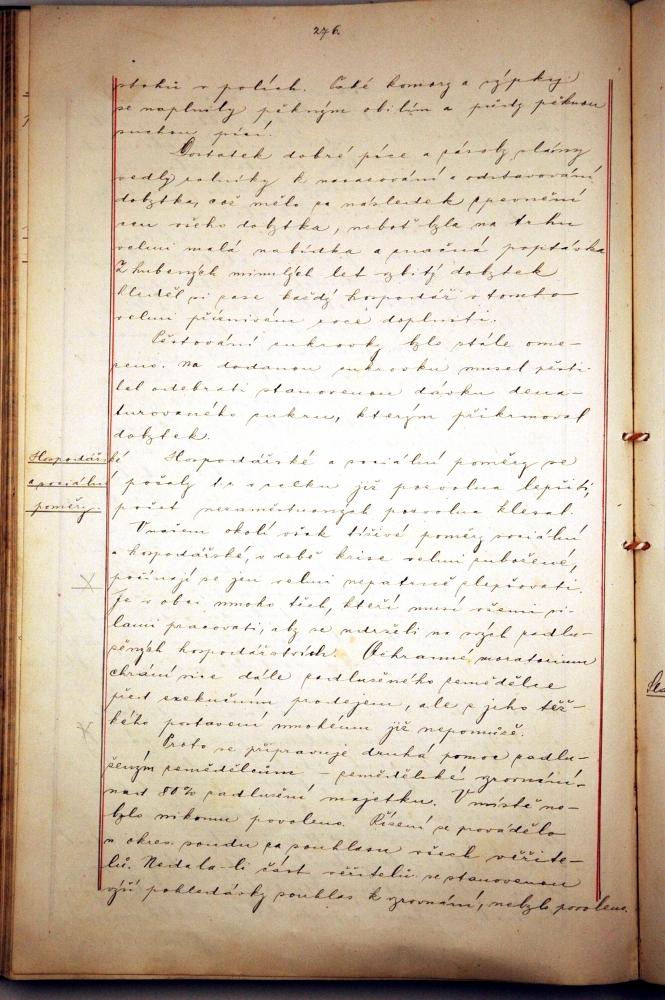 276
stohů v polích. Také komory a sýpky
se naplnily pěkným obilím a půdy pěknou
suchou pící.
Dostatek dobré píce a zásoby slámy
vedly rolníky k  a odstavování
dobytka, což mělo za následek zpevnění
cen všeho dobytka, neboť byla na trhu
velmi malá nabídka a značná poptávka
Z hubených minulých let zbitý dobytek
hleděl si zase každý hospodář v tomto
velmi příznivém roce doplniti.
Pěstování cukrovky bylo stále ome-
zeno. Na dodanou cukrovku musel pěsti-
tel odebrati stanovenou dávku dena-
turovaného cukru, kterým přikrmoval
dobytek.
Hospodářské
a sociální
poměry.
Hospodářské a sociální poměry se
počaly  vcelku již pozvolna lepšiti,
počet nezaměstnaných pozvolna klesal.
V našem okolí však tísivé poměry sociální
a hospodářské, v době krise velmi pobořené,
počínají se jen velmi nepatrně zlepšovati.
Je v obci mnoho těch, kteří musí všemi si-
lami pracovati, aby se udrželi na svých zadlu-
žených hospodářstvích. Ochranné moratorium
chrání sice dále zadluženého zemědělce
před exekučním prodejem, ale z jeho těž-
kého postavení mnohému již nepomůže.
Proto se připravuje druhá pomoc zadlu-
ženým zemědělcům - zemědělské vyrovnání.
nad 80% zadlužení majetku. V místě ne-
bylo nikomu povoleno. Řízení se provádělo
u okres. soudu za souhlasu všech věřite-
lů. Nedala-li část věřitelů se stanovenou
výší pohledávky souhlas k vyrovnání, nebylo povoleno.